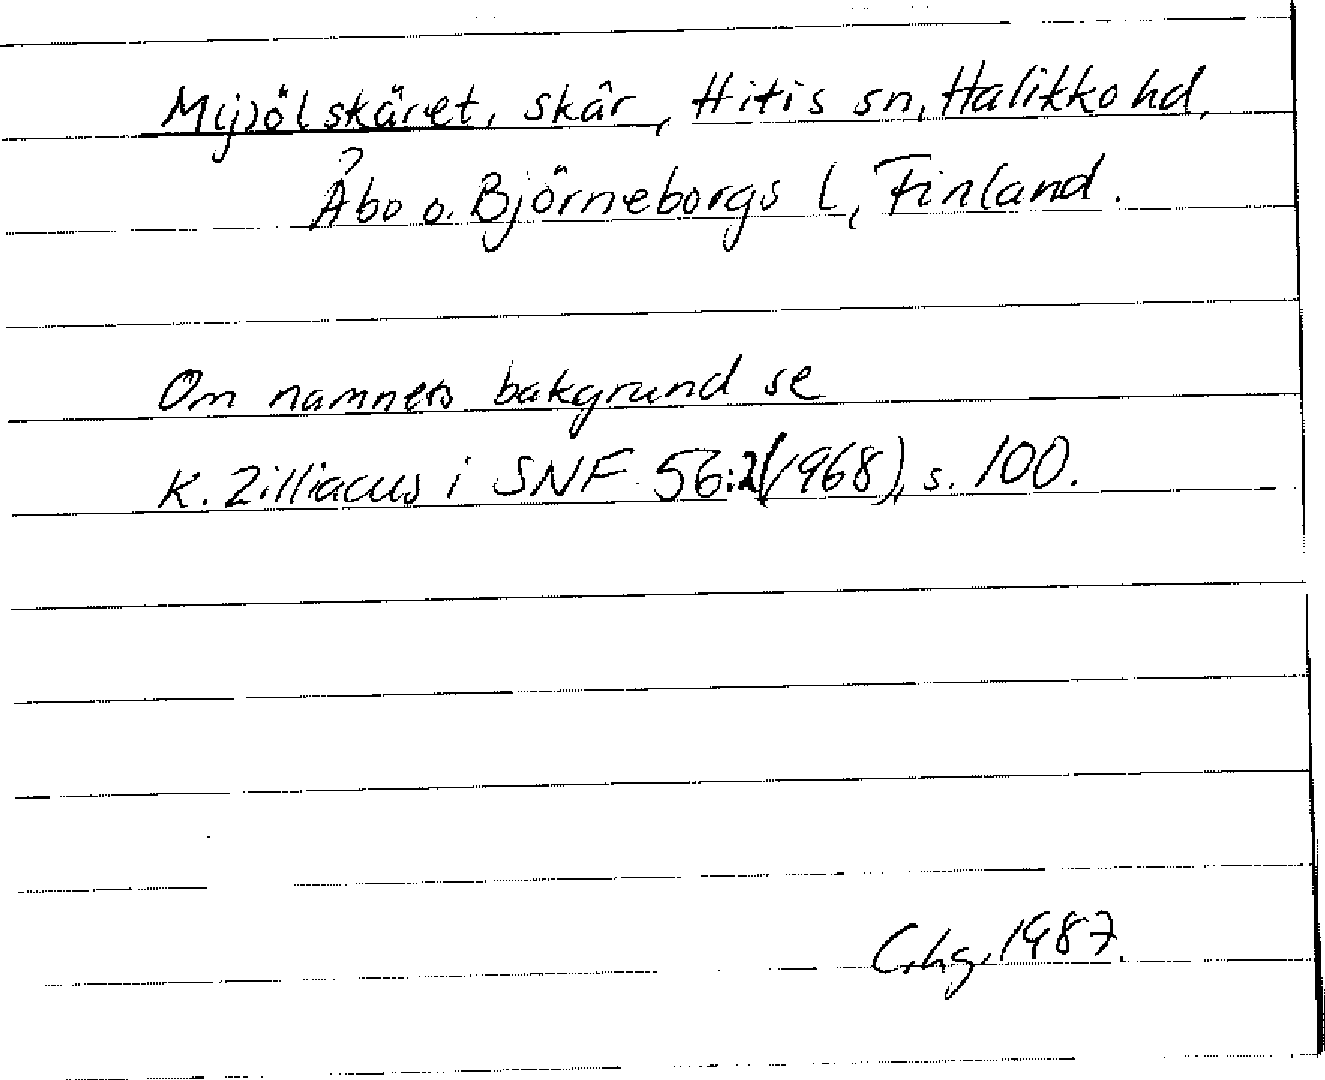 Mjölskäret, skär, Hitis sn, Halikko hd,
Åbo o. Björneborgs l, Finland.
Om namnets bakgrund se
K. Zilliacus i SNF 56:2(1968), s. 100.
C.hg. 1987.